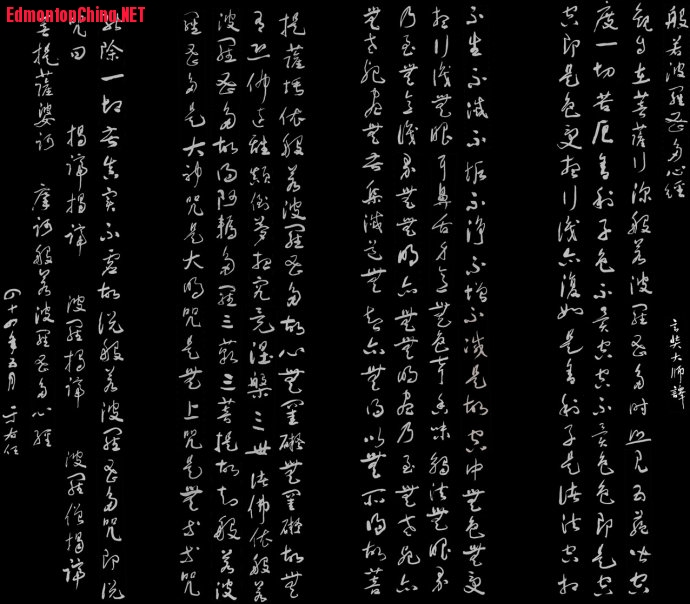 EdmontopChina.NET
般若波羅蜜多心經
玄奘大師譯
觀自在菩薩行深般若波羅蜜多時照見五蘊皆空
度一切苦厄舍利子色不異空空不異色色即是空
空即是色受想行識亦復如是舍利子是諸法空相
不生不滅不垢不淨不增不減是故空中無色無受
想行識無眼耳鼻舌身意無色聲香味觸法無眼界
乃至無意識界無無明亦無無明盡乃至無老死亦
無老死盡無苦集滅道無智亦無得以無所得故菩
提薩埵依般若波羅蜜多故心無罣礙無罣礙故無
有恐怖遠離顛倒夢想究竟涅槃三世諸佛依般若
波羅蜜多故得阿耨多羅三藐三菩提故知般若波
羅蜜多是大神咒是大明咒是無上咒是無等等咒
能除一切苦真實不虛故說般若波羅蜜多咒即說
咒曰 揭諦揭諦 波羅揭諦 波羅僧揭諦
菩提薩婆訶 摩訶般若波羅蜜多心經
四十四年五月 于右任